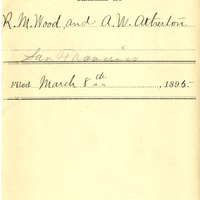 R. M. Wood and A. W. Atherton
San Francisco
Filed March 8th, 1895